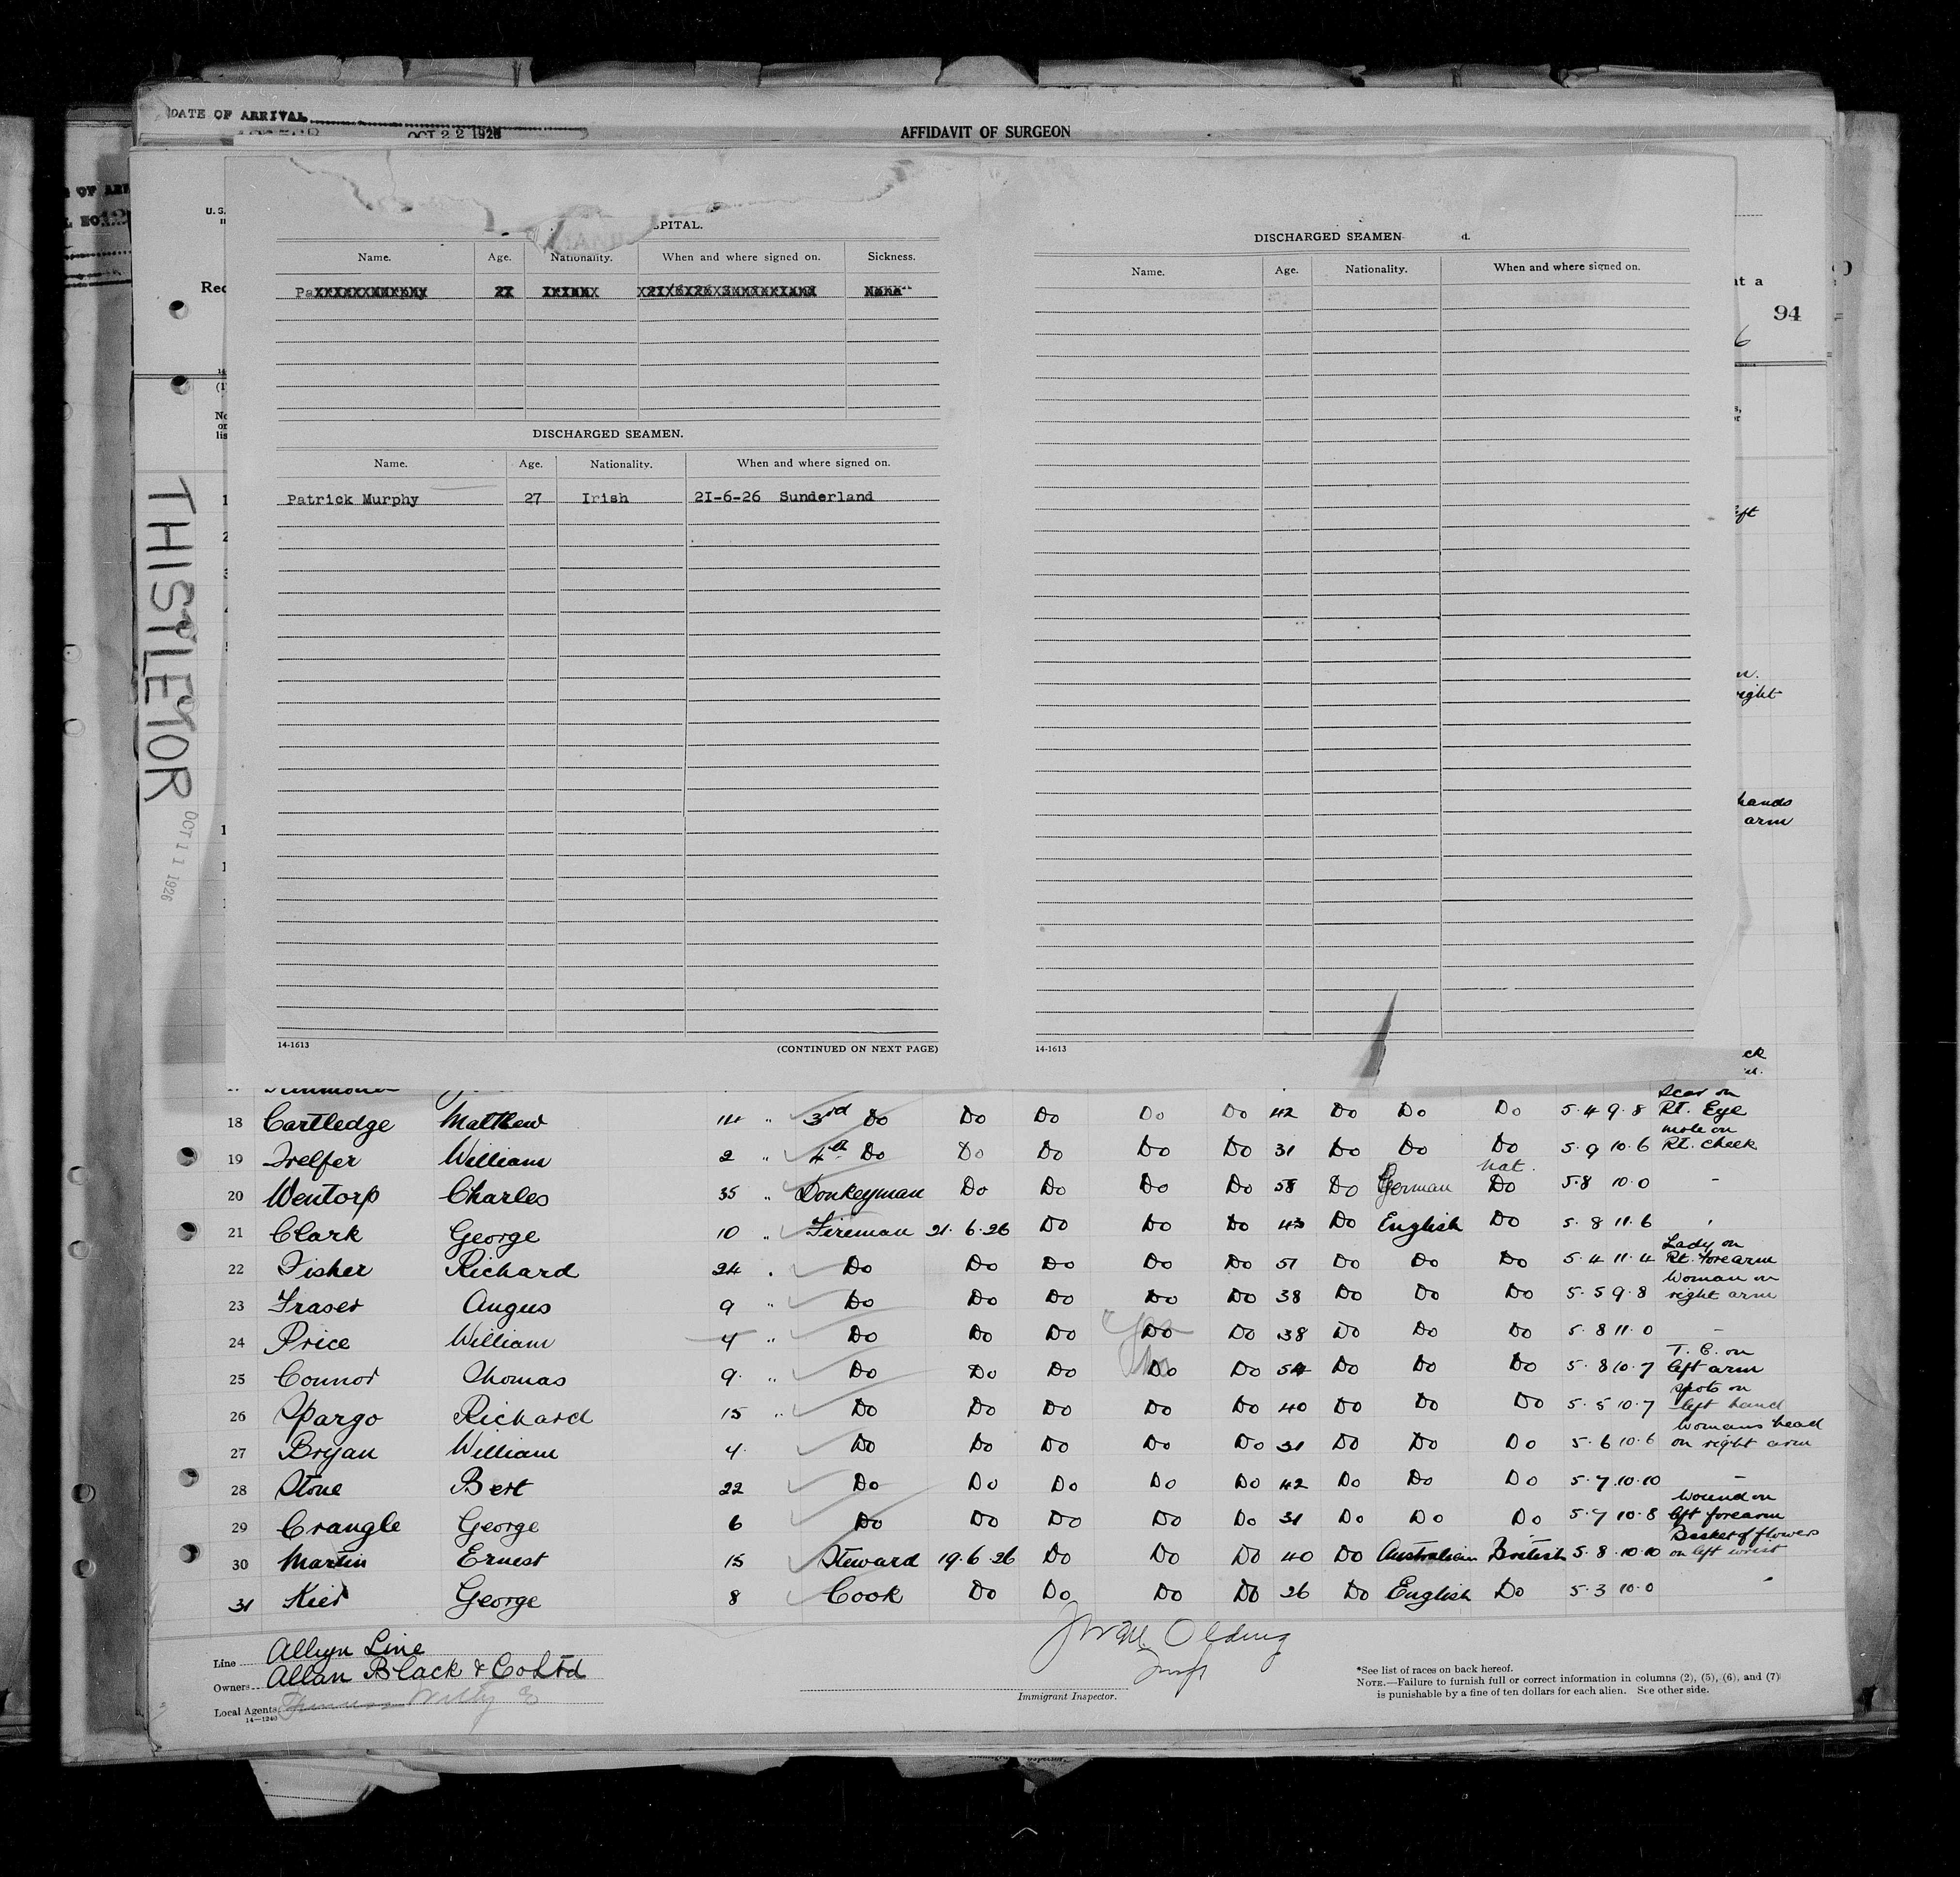 DATE OF ARRIVAL
OCT 22 1926
AFFIDAVIT OF SURGEON
OF ARR
U. S.
PITAL.
Name. Age. Nationality. When and where signed on. Sickness.
DISCHARGED SEAMEN.
Name. Age. Nationality. When and where signed on.
Patrick Murphy 27 Irish 21-6-26 Sunderland
14-1613 (CONTINUED ON NEXT PAGE)
DISCHARGED SEAMEN d.
Name. Age. Nationality. When and where signed on.
14-1613
at a
94
THISTLEMOR
OCT 11 1926
right
hands
arm
18 Cartledge Matthew 14 " 3rd Do Do Do Do Do 42 Do Do Do 5.4 9.8 Scar on Rt. Eye
19 Telfer William 2 " 4th Do Do Do Do Do 31 Do Do Do 5.9 10.6 mole on Rt. Cheek
20 Wentorp Charles 35 " Donkeyman Do Do Do Do 58 Do German nat. Do 5.8 10.0 -
21 Clark George 10 " Fireman 21.6.26 Do Do Do 43 Do English Do 5.8 11.6
22 Fisher Richard 24 " Do Do Do Do Do 51 Do Do Do 5.4 11.4 Lady on Rt. forearm
23 Fraser Angus 9 " Do Do Do Do Do 38 Do Do Do 5.5 9.8 Woman on right arm
24 Price William 4 " Do Do Do Do Do 38 Do Do Do 5.8 11.0 -
25 Connor Thomas 9 " Do Do Do Do Do 54 Do Do Do 5.8 10.7 T. C. on left arm
26 Spargo Richard 15 " Do Do Do Do Do 40 Do Do Do 5.5 10.7 spots on left hand
27 Bryan William 4 Do Do Do Do Do 31 Do Do Do 5.6 10.6 Womans head on right arm
28 Stone Bert 22 Do Do Do Do Do 42 Do Do Do 5.7 10.10 -
29 Crangle George 6 Do Do Do Do Do 31 Do Do Do 5.7 10.8 Wound on left forearm
30 Martin Ernest 15 Steward 19.6.26 Do Do Do 40 Do Australian British 5.8 10.10 Basket of flowers on left wrist
31 Kier George 8 Cook Do Do Do Do 26 Do English Do 5.3 10.0
Line Allwyn Line
Owners Allan Black & Co Ltd
Local Agents
14-1240
Olding
Immigrant Inspector.
*See list of races on back hereof.
NOTE.—Failure to furnish full or correct information in columns (2), (5), (6), and (7)
is punishable by a fine of ten dollars for each alien. See other side.